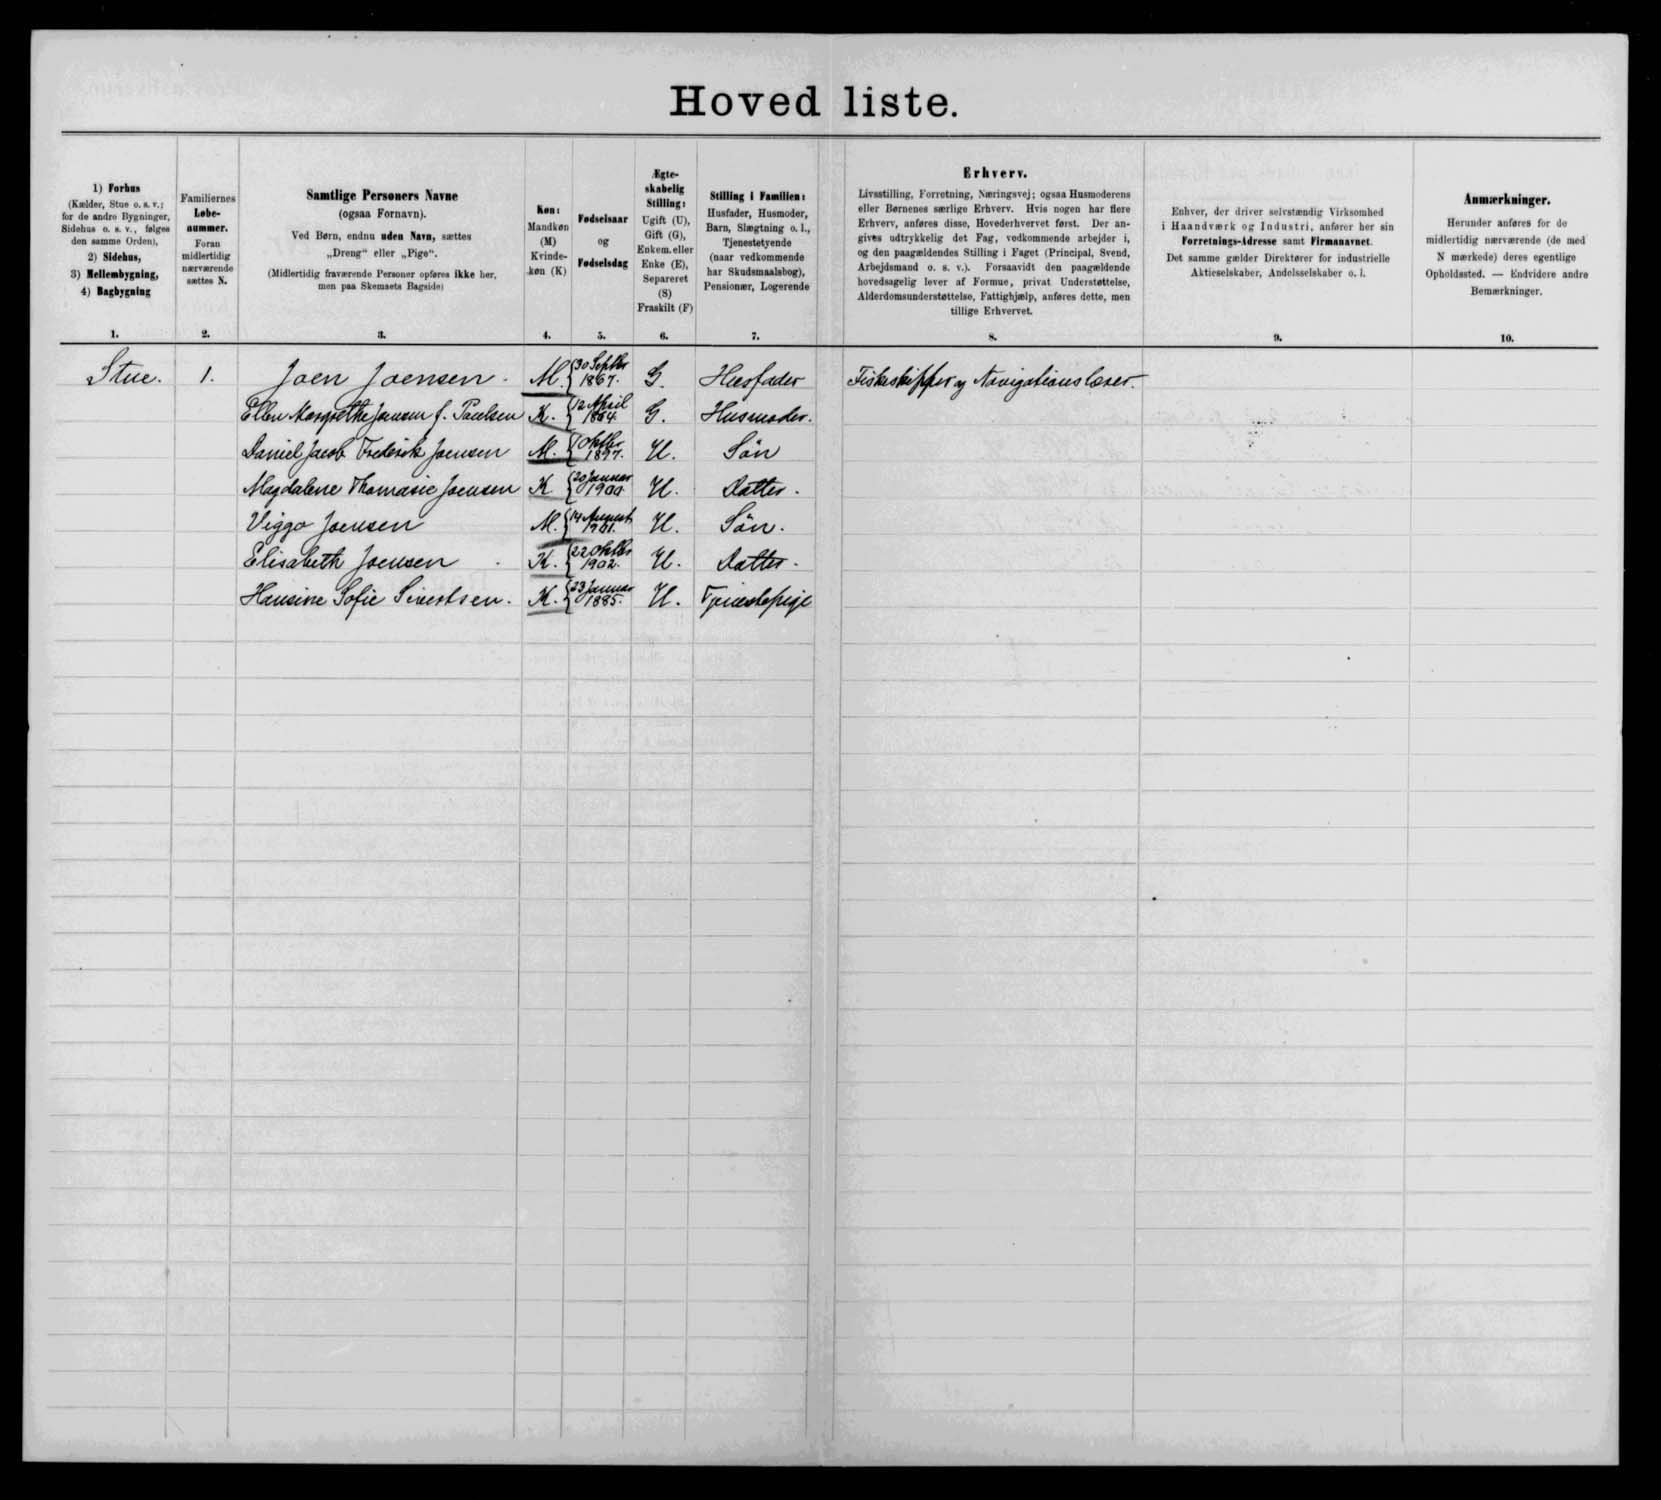 Hovedliste.
1) Forhus
(Kælder, Stue o. s. v.;
for de andre Bygninger,
Sidehus o. s. v., følges
den samme Orden),
2) Sidehus,
3) Mellembygning,
4) Bagbygning
1.
Familiernes
Løbe-
nummer.
Foran
midlertidig
nærværende
sættes N.
2.
Samtlige Personers Navne
(ogsaa Fornavn).
Ved Børn, endnu uden Navn, sættes
„Dreng“ eller „Pige“.
(Midlertidig fraværende Personer opføres ikke her,
men paa Skemaets Bagside)
3.
Køn:
Mandkøn
(M)
Kvinde-
køn (K)
4.
Fødselsaar
og
Fødselsdag
5.
Ægte-
skabelig
Stilling:
Ugift (U),
Gift (G),
Enkem. eller
Enke (E),
Separeret
(S)
Fraskilt (F)
6.
Stilling i Familien:
Husfader, Husmoder,
Barn, Slægtning o. l.,
Tjenestetyende
(naar vedkommende
har Skudsmaalsbog),
Pensionær, Logerende
7.
Erhverv.
Livsstilling, Forretning, Næringsvej; ogsaa Husmoderens
eller Børnenes særlige Erhverv. Hvis nogen har flere
Erhverv, anføres disse, Hovederhvervet først. Der an-
gives udtrykkelig det Fag, vedkommende arbejder i,
og den paagældendes Stilling i Faget (Principal, Svend,
Arbejdsmand o. s. v.). Forsaavidt den paagældende
hovedsagelig lever af Formue, privat Understøttelse,
Alderdomsunderstøttelse, Fattighjælp, anføres dette, men
tillige Erhvervet.
8.
Enhver, der driver selvstændig Virksomhed
i Haandværk og Industri, anfører her sin
Forretnings-Adresse samt Firmanavnet.
Det samme gælder Direktører for industrielle
Aktieselskaber, Andelsselskaber o. l.
9.
Anmærkninger.
Herunder anføres for de
midlertidig nærværende (de med
N mærkede) deres egentlige
Opholdssted. — Endvidere andre
Bemærkninger.
10.
Stue. 1. Joen Joensen. M. 30 Septbr 1867. G. Husfader Fiskeskipper og Navigationslærer.
Ellen Margrethe Joensen f. Poulsen K. 12 April 1864. G. Husmoder.
Daniel Jacob Frederik Joensen M. 1 Oktbr 1897. U. Sön
Magdalene Thomasie Joensen K. 20 Januar 1900. U. Datter.
Viggo Joensen M. 14 August 1901. U. Sön.
Elisabeth Joensen K. 22 Oktbr 1902. U. Datter.
Hansine Sofie Sivertsen. K. 23 Januar 1885. U. Tjenestepige